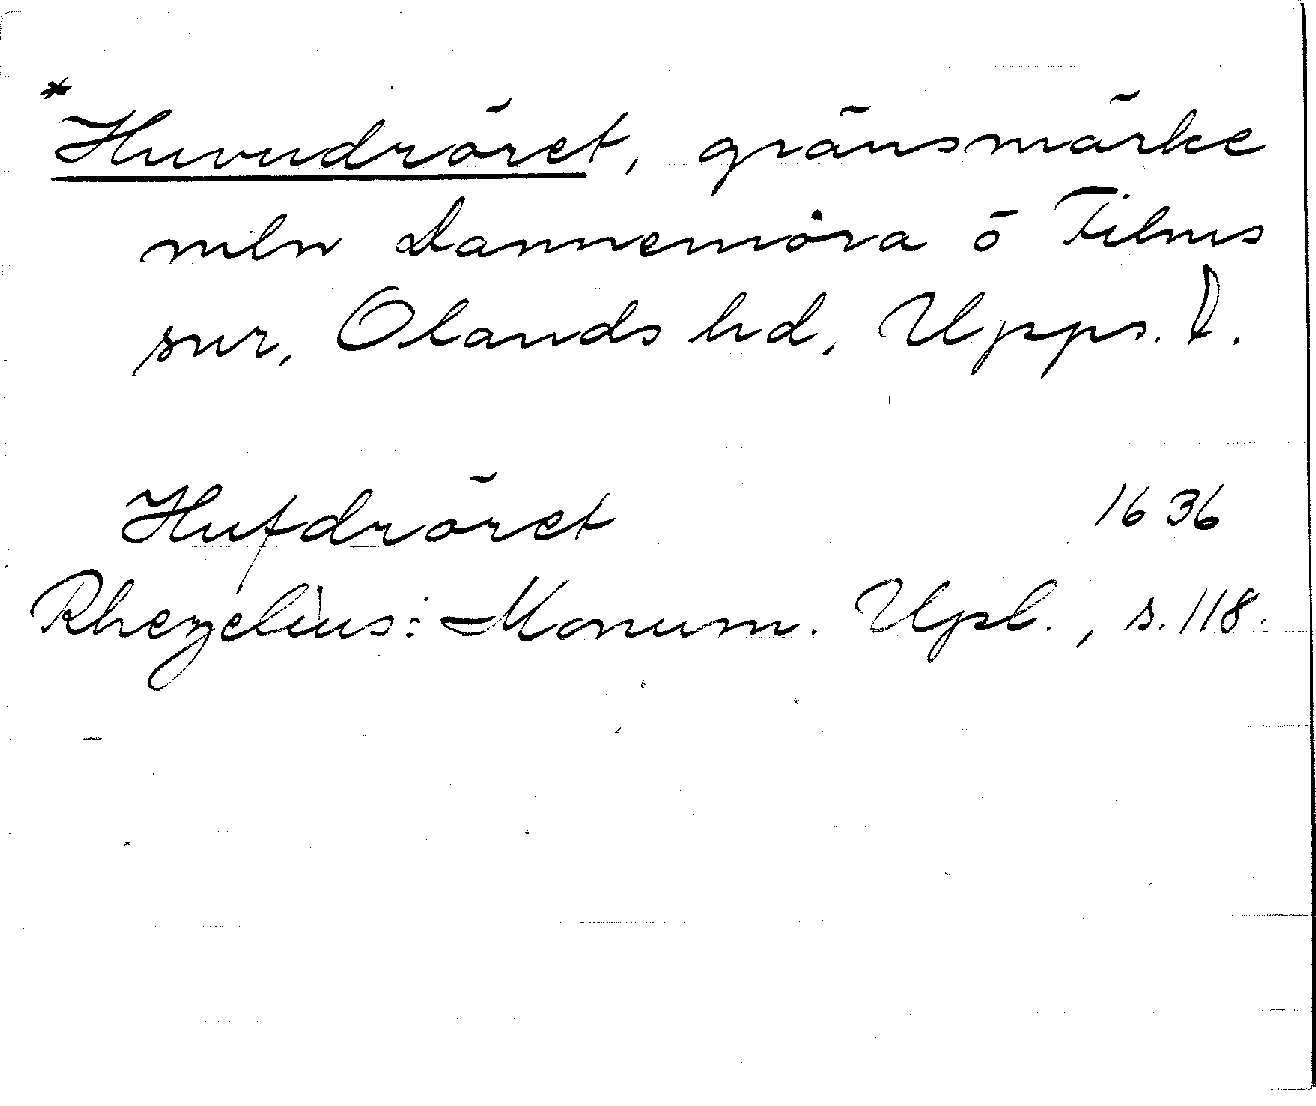 *Huvudröret, gränsmärke
mln Dannemora o Films
snr, Olands hd, Upps. l.
Hufdröret 1636
Rhezelius: Monum. Upl., s. 118.